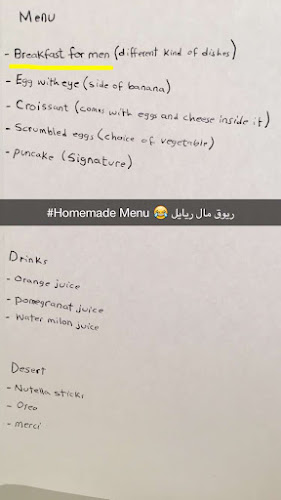 Menu
- Breakfast for men (different kind of dishes)
- Egg with eye (side of banana)
- Croissant (comes with eggs and cheese inside it)
- Scrumbled eggs (choice of vegetable)
- puncake (Signature)
#Homemade Menu 😂 ريوق مال ريايل
Drinks
- Orange juice
- pomegranat juice
- water milon juice
Desert
- Nutella sticks
- Oreo
- merci